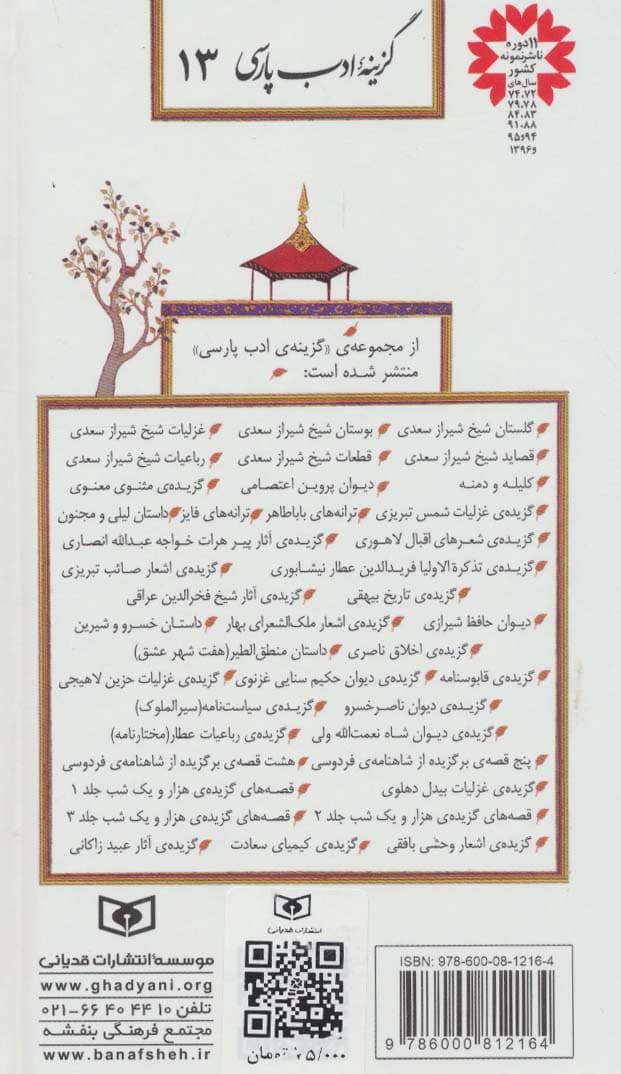 ۱۱ دوره
ناشر نمونه
کشور
سال‌های
۷۴،۷۲
۷۹،۷۸
۸۴،۸۳
۹۱،۸۸
۹۴و۹۵
و۱۳۹۶
گزینهٔ ادب پارسی ۱۳
از مجموعه‌ی «گزینه‌ی ادب پارسی»
منتشر شده است:
گلستان شیخ شیراز سعدی بوستان شیخ شیراز سعدی غزلیات شیخ شیراز سعدی
قصاید شیخ شیراز سعدی قطعات شیخ شیراز سعدی رباعیات شیخ شیراز سعدی
کلیله و دمنه دیوان پروین اعتصامی گزیده‌ی مثنوی معنوی
گزیده‌ی غزلیات شمس تبریزی ترانه‌های باباطاهر ترانه‌های فایز داستان لیلی و مجنون
گزیده‌ی شعرهای اقبال لاهوری گزیده‌ی آثار پیر هرات خواجه عبدالله انصاری
گزیده‌ی تذکرة الاولیا فریدالدین عطار نیشابوری گزیده‌ی اشعار صائب تبریزی
گزیده‌ی تاریخ بیهقی گزیده‌ی آثار شیخ فخرالدین عراقی
دیوان حافظ شیرازی گزیده‌ی اشعار ملک‌الشعرای بهار داستان خسرو و شیرین
گزیده‌ی اخلاق ناصری داستان منطق‌الطیر(هفت شهر عشق)
گزیده‌ی قابوسنامه گزیده‌ی دیوان حکیم سنایی غزنوی گزیده‌ی غزلیات حزین لاهیجی
گزیده‌ی دیوان ناصرخسرو گزیده‌ی سیاست‌نامه(سیرالملوک)
گزیده‌ی دیوان شاه نعمت‌الله ولی گزیده‌ی رباعیات عطار(مختارنامه)
پنج قصه‌ی برگزیده از شاهنامه‌ی فردوسی هشت قصه‌ی برگزیده از شاهنامه‌ی فردوسی
گزیده‌ی غزلیات بیدل دهلوی قصه‌های گزیده‌ی هزار و یک شب جلد ۱
قصه‌های گزیده‌ی هزار و یک شب جلد ۲ قصه‌های گزیده‌ی هزار و یک شب جلد ۳
گزیده‌ی اشعار وحشی بافقی گزیده‌ی کیمیای سعادت گزیده‌ی آثار عبید زاکانی
موسسهٔ انتشارات قدیانی
www.ghadyani.org
تلفن ۱۰ ۴۴ ۴۰ ۶۶-۰۲۱
مجتمع فرهنگی بنفشه
www.banafsheh.ir
انتشارات قدیانی
۵/۰۰۰ تومان
ISBN: 978-600-08-1216-4
9 786000 812164